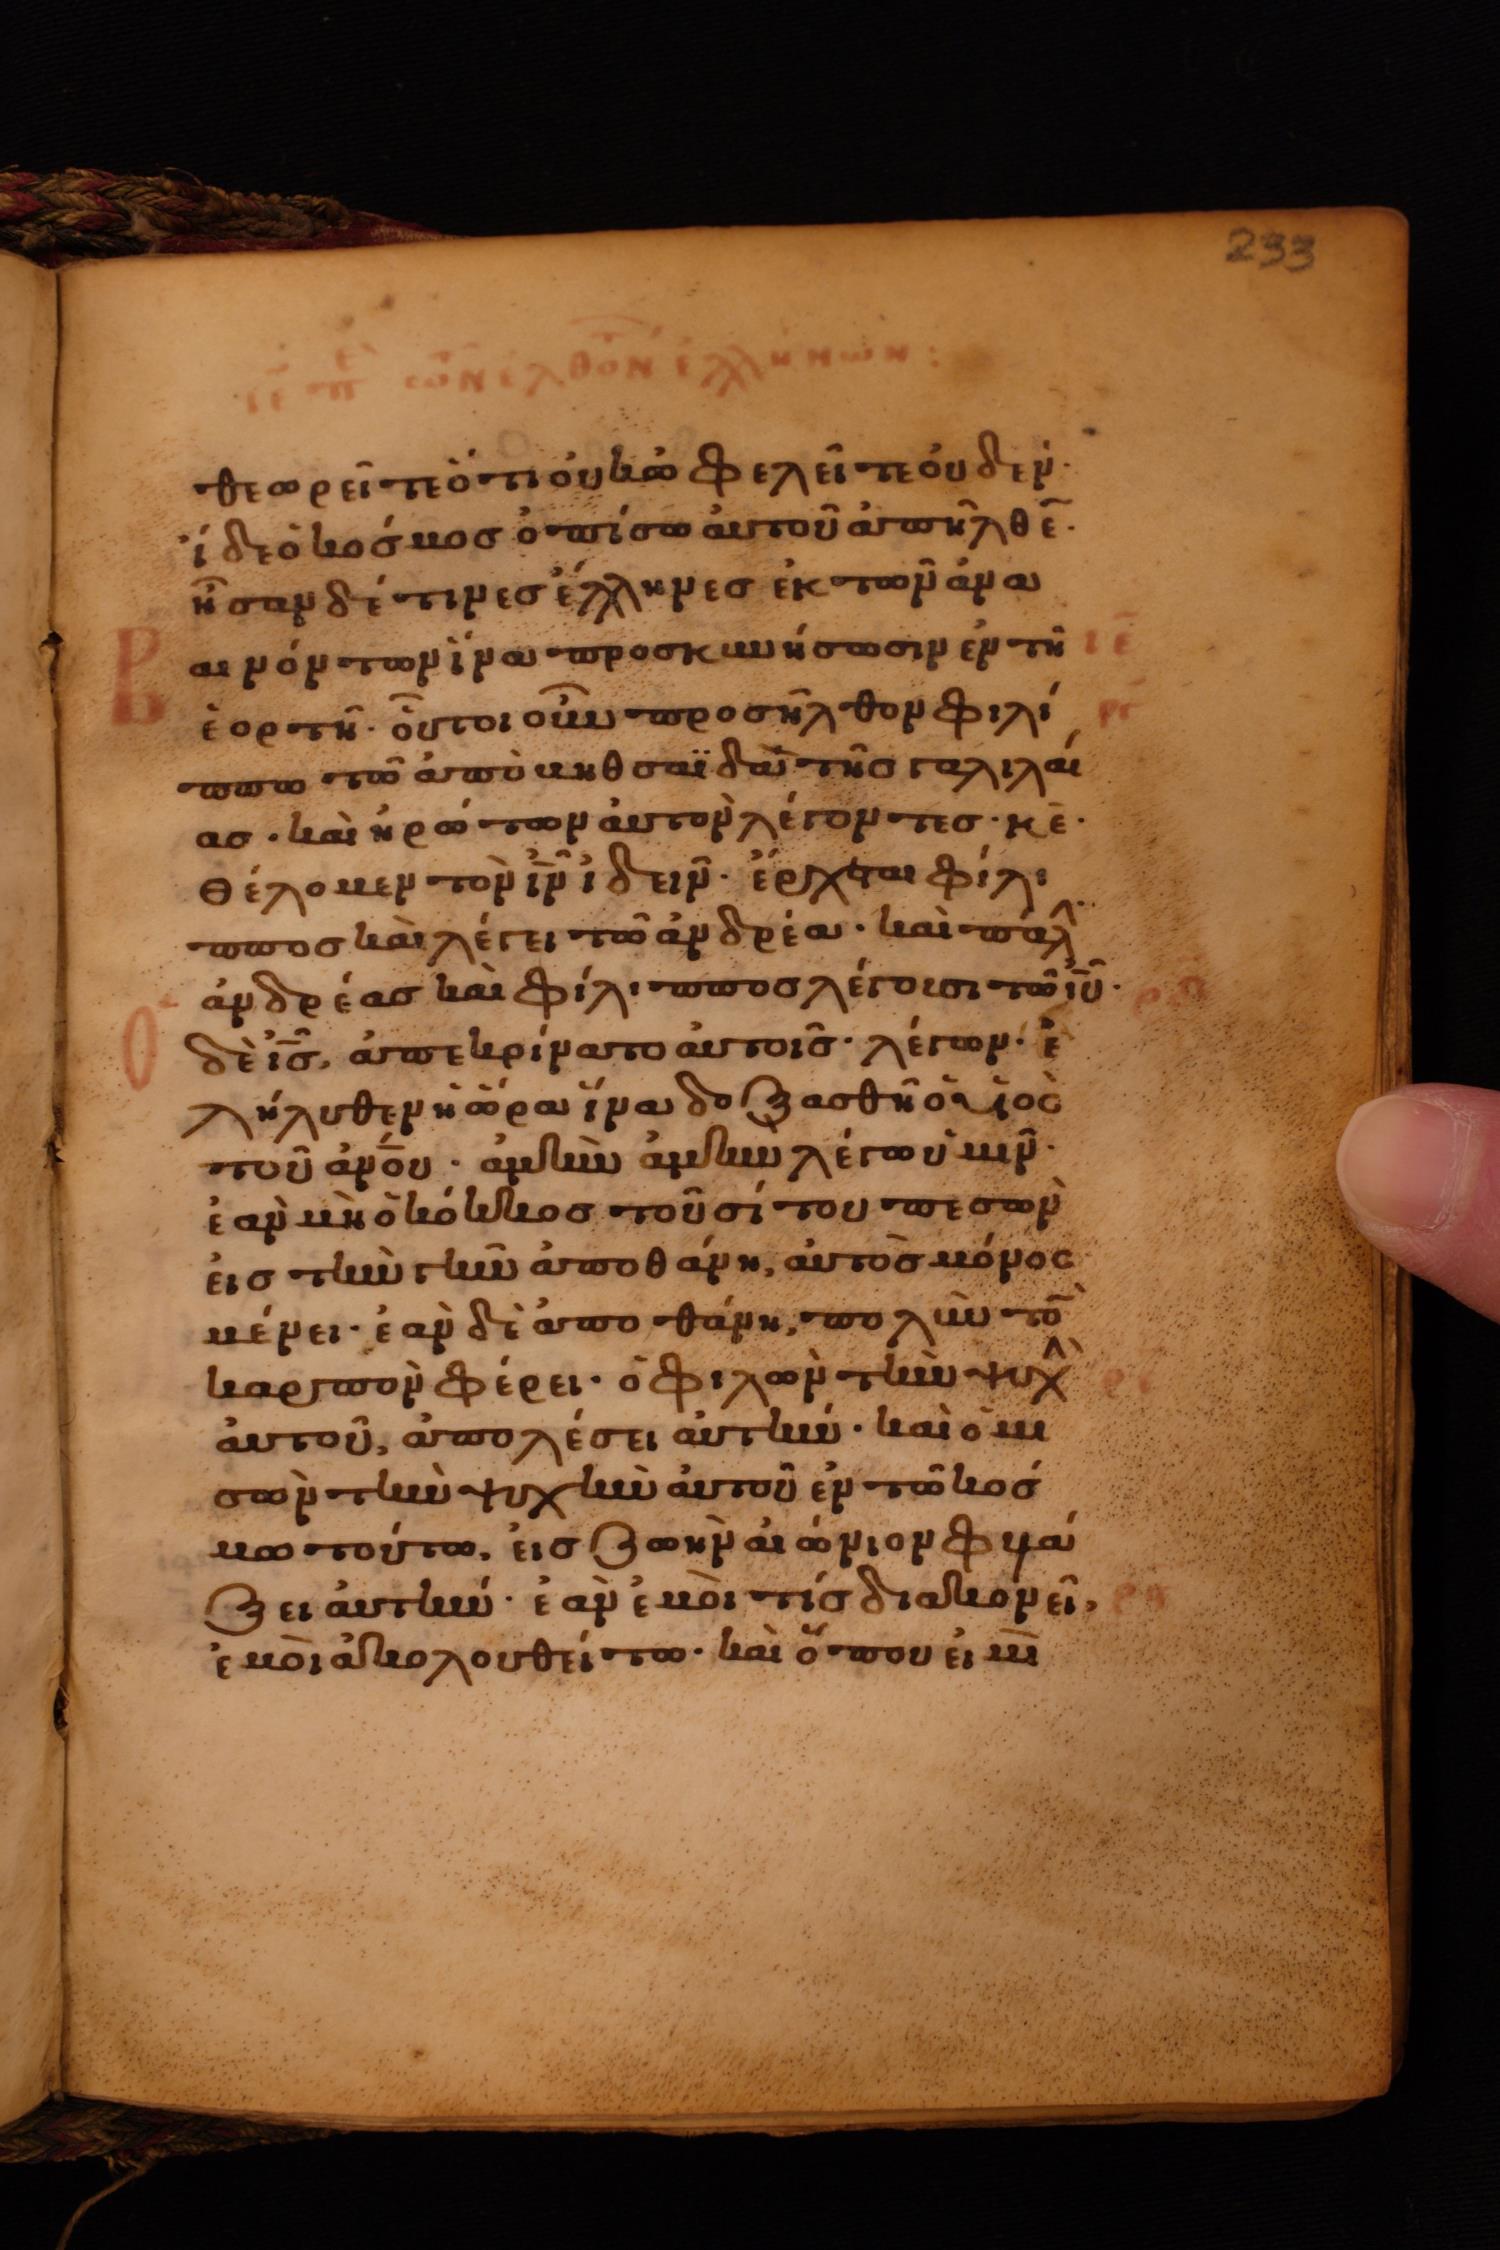 233
ιε πε τῶν ἐλθόν ἑλλήνων :
θεωρεῖτε ὅτι οὐκ ὠφελεῖτε οὐδέν·
ἴδε ὁ κόσμος ὀπίσω αὐτοῦ ἀπῆλθε̄·
ἦσαν δέ τινες ἕλληνες ἐκ τῶν ἀνα
αινόντων ἵνα προσκυνήσωσιν ἐν τῆ
Β
ιε
ἑορτῆ· οὗτοι οὖν προσῆλθον φιλί
ππω τῶ ἀπὸ μηθσαϊδὰ τῆς γαλιλαί
ας· καὶ ἠρώτων αὐτὸν λέγοντες· κε·
θέλομεν τὸν ιν ἰδεῖν· ἔρχεται φίλι
ππος καὶ λέγει τῶ ἀνδρέα· καὶ πάλ
ἀνδρέας καὶ φίλιππος λέγουσι τῶ ιυ·
Ο
δὲ ις, ἀπεκρίνατο αὐτοῖς· λέγων· ἐ
λήλυθεν ἡ ὥρα ἵνα δοξασθῆ ὁ υἱὸς
τοῦ ανου· ἀμὴν ἀμὴν λέγω ὑμῖν·
ἐὰν μὴ ὁ κόκκος τοῦ σίτου πεσὼν
εἰς τὴν γῆν ἀποθάνη, αὐτὸς μόνος
μένει· ἐὰν δὲ ἀποθάνη, πολὺν το
καρπὸν φέρει· ὁ φιλῶν τὴν ψυχὴ
αὐτοῦ, ἀπολέσει αὐτήν· καὶ ὁ μι
σῶν τὴν ψυχὴν αὐτοῦ ἐν τῶ κόσ
μω τούτω, εἰς ζωὴν αἰώνιον φυλά
ξει αὐτήν· ἐὰν ἐμοὶ τίς διακονεῖ,
ἐμοὶ ἀκολουθείτω· καὶ ὅπου εἰμὶ